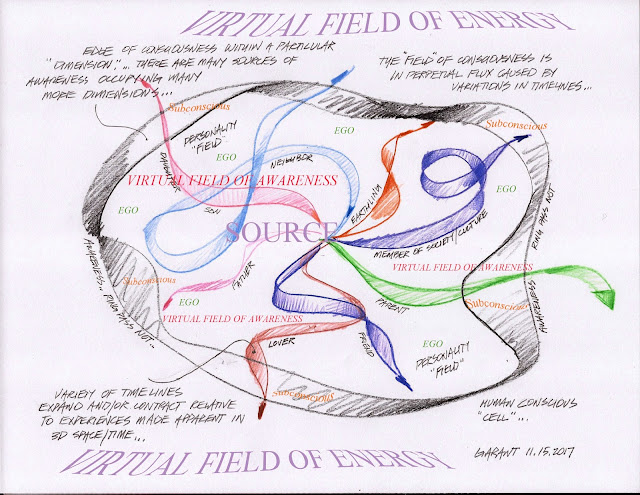 VIRTUAL FIELD OF ENERGY
EDGE OF CONSCIOUSNESS WITHIN A PARTICULAR
"DIMENSION"... THERE ARE MANY SOURCES OF
AWARENESS OCCUPYING MANY
MORE DIMENSIONS...
THE "FIELD" OF CONSCIOUSNESS IS
IN PERPETUAL FLUX CAUSED BY
VARIATIONS IN TIMELINES...
Subconscious
Subconscious
PERSONALITY
"FIELD"
EGO
NEIGHBOR
DAUGHTER
VIRTUAL FIELD OF AWARENESS
EGO
EGO
SON
EARTHLING
SOURCE
MEMBER OF SOCIETY/CULTURE
RING PASS NOT
AWARENESS
AWARENESS... RING PASS NOT...
Subconscious
FATHER
VIRTUAL FIELD OF AWARENESS
EGO
PARENT
Subconscious
VIRTUAL FIELD OF AWARENESS
LOVER
FREUD
EGO
PERSONALITY
"FIELD"
Subconscious
VARIETY OF TIMELINES
EXPAND AND/OR CONTRACT RELATIVE
TO EXPERIENCES MADE APPARENT IN
3D SPACE/TIME...
HUMAN CONSCIOUS
"CELL"...
GARANT 11.15.2017
VIRTUAL FIELD OF ENERGY